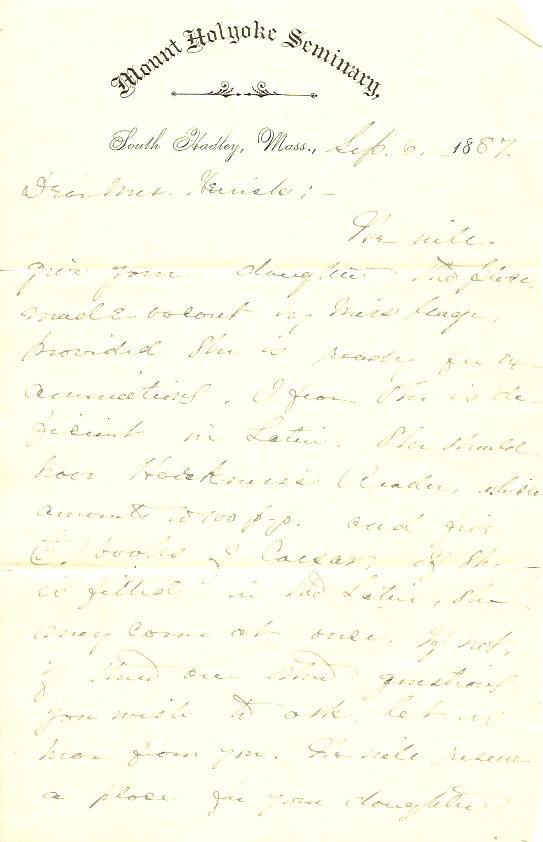 Mount Holyoke Seminary,
South Hadley, Mass., Sep. 6. 1887.
Dear Mrs. :-
We will
give your daughter the place
made vacant by Miss
provided she is ready for ex-
aminations. I fear she is de-
ficient in Latin. She should
have Harkness's Reader, which
amounts to 100 p.p. and five
(5) books of Caesar. If she
is fitted in the Latin, she
may come at once. If not,
if there are other questions
you wish to ask, let us
hear from you. We will reserve
a place for your daughter